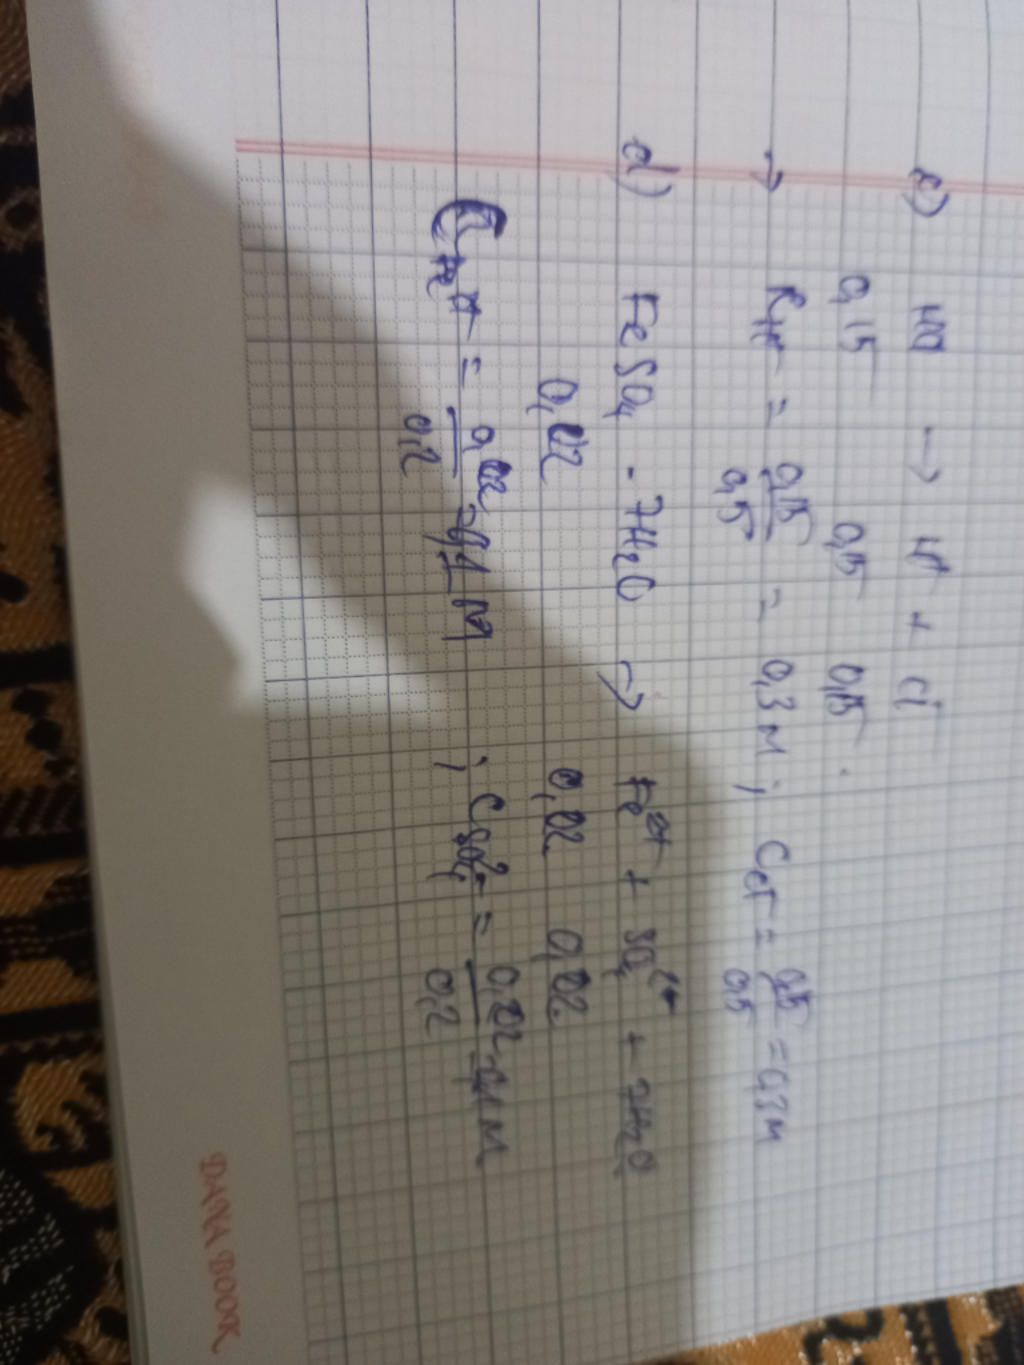 c) HCl → H⁺ + Cl⁻
0,15 0,15 0,15
→ C_H⁺ = 0,15/0,5 = 0,3M ; C_Cl⁻ = 0,15/0,5 = 0,3M
d) FeSO₄ . 7H₂O → Fe²⁺ + SO₄²⁻ + 7H₂O
0,02 0,02 0,02
= 0,02/0,2 = 0,1 M ; C_SO₄²⁻ = 0,02/0,2 = 0,1M
DANA BOOK